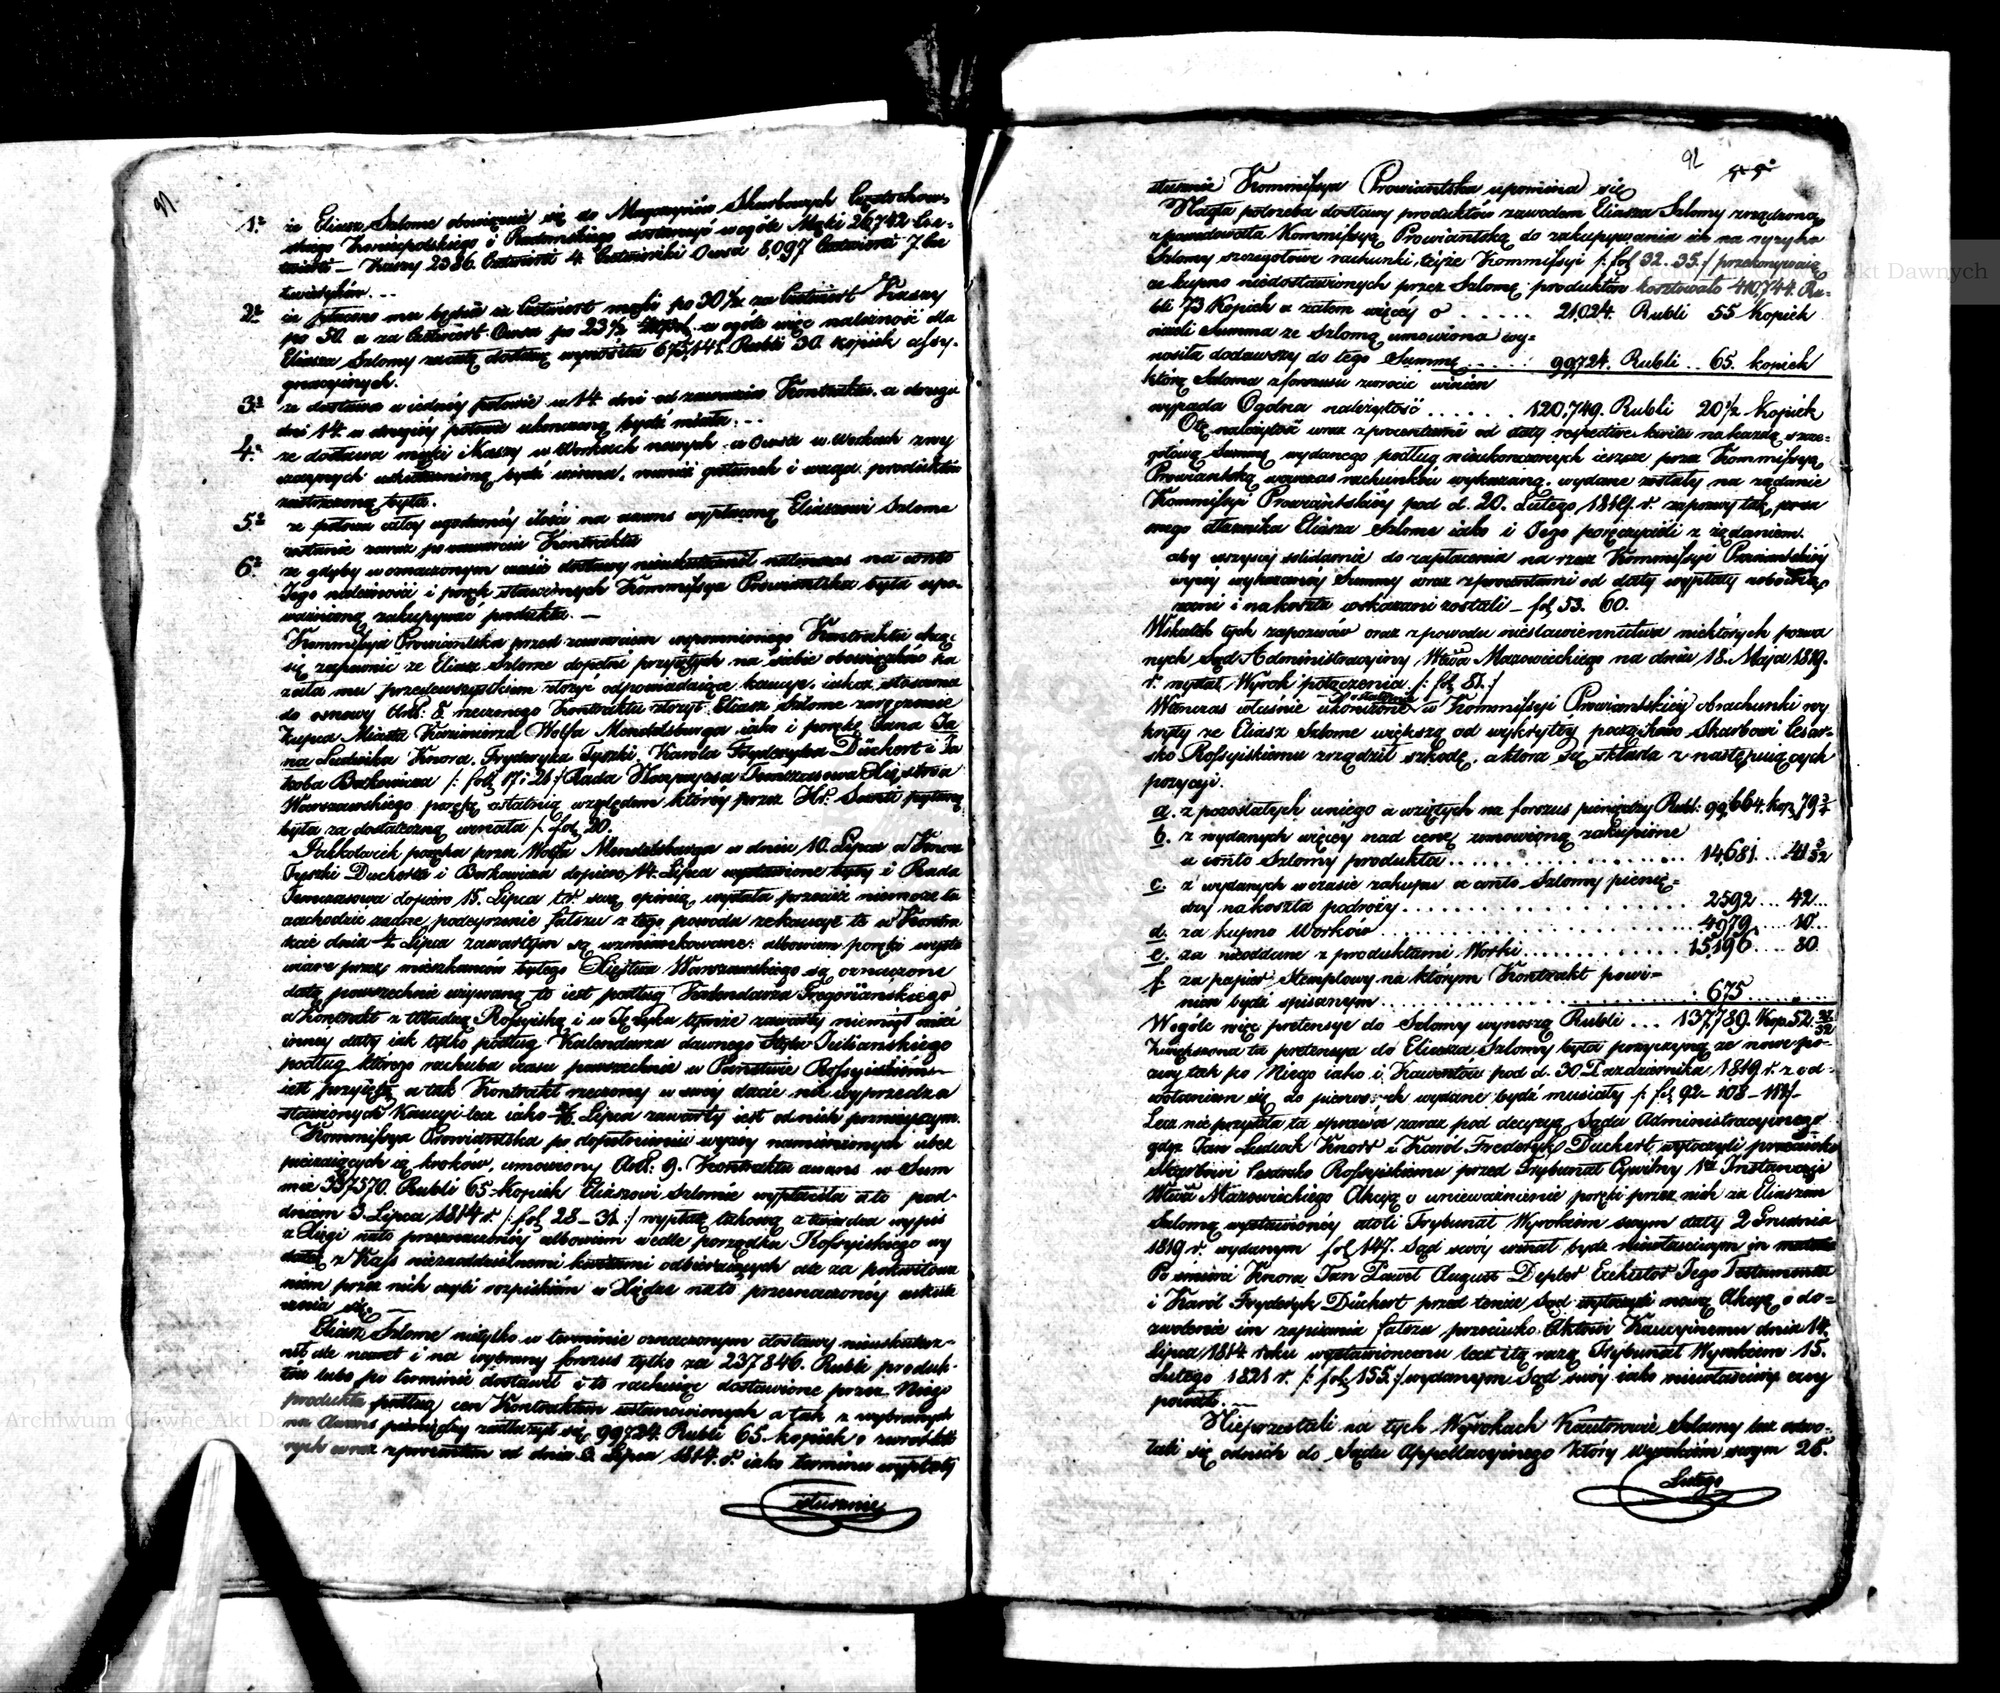 91
1º że Eliasz Szlome obowiązuie się do Magazynów Skarbowych Częstochow-
skiego Koniecpolskiego i Radomskiego dostawić wogóle Mąki 26,742 Cze-
twierti – Kaszy 2386. Czetwierti 4. Czetwieriki Owsa 8,097 Czetwierti 7 Cze
twierików. –
2º że płacono mu będzie za Czetwiert mąki po 30 ½ za Czetwiert Kaszy
po 50. a za Czetwiert Owsa po 23 ½ w ogóle więc należność dla
Eliasza Szlomy za całą dostawę wynosiła 675,141. Rubli 30. kopiek assy-
gnacyinych.
3º że dostawa w iednéy połowie w 14. dni od zawarcia Kontraktu. a drugie
dni 14. w drugiéy połowie ukonczoną bydź miała. –
4º że dostawa mąki i Kaszy w Workach nowych a Owsa w Workach zwy
czaynych uskutecznioną bydź winna, niemniéj gatunek i waga produktów
zastrzeżoną była.
5º że połowa całéy ugodzonéy ilości na awans wypłaconą Eliaszowi Szlome
zostanie zaraz po zawarciu Kontraktu
6º że gdyby w oznaczonym czasie dostawy nieuskutecznił natenczas na conto
Jego należności i poręk stawionych Kommissya Prowiantska była upo-
ważnioną zakupywać produkta. –
Kommissya Prowiantska przed zawarciem wspomnionego Kontraktu chcąc
się zapewnić że Eliasz Szlome dopełni przyiętych na siebie obowiązków ka
zała mu przedewszystkiem złożyć odpowiadaiące kaucye, iakoż stosownie
do osnowy Art: 8 rzeczonego Kontraktu złożył Eliasz Szlome zaręczenie
Kupca Miasta Kazimierza Wolfa Mendelsburga iako i porękę dana Ja
na Ludwika Knora. Fryderyka Tyszki. Karola Fryderyka Düchert i Ja
koba Berkowicza /: fol 17 i 21 :/ Rada Naywyższa Tymczasowa Xięstwa
Warszawskiego porękę ostatnią względem któréy przez Hr: Santi pytaną
była za dostateczną uznała /: fol 20.
Jakkolwiek poręka przez Wolfa Mendelsburga w dniu 10. Lipca a Knora
Tyszki Ducherta i Berkowicza dopiero 14. Lipca wystawione były i Rada
Tymczasowa dopiero 15. Lipca t.r. swą opinią wydała przecież niemoże tu
zachodzić żadne podeyrzenie fałszu z tego powodu że kaucye te w Kontra
kcie dnia 4. Lipca zawartym są wzmiankowane: albowiem poręki wysta
wiane przez mieszkańców byłego Xięstwa Warszawskiego są oznaczone
datą powszechnie używaną to iest podług Kalendarza Gregoriańskiego
a Kontrakt z Władzą Rossyiską i w Języku tymże zawarty niemógł mieć
innéy daty iak tylko podług Kalendarza dawnego Stylu Juliańskiego
podług którego rachuba czasu powszechnie w Państwie Rossyiskiém
iest przyięta, a tak Kontrakt rzeczony w swéy dacie nie wyprzedza
stawionych Kaucyi lecz iako Lipca zawarty iest od nich poznieyszym.
Kommissya Prowiantska po dopełnieniu wyżéy namienionych ubez
pieczaiących ią kroków, umowiony Art: 9. Kontraktu awans w Sum
mie 337570. Rubli 65 Kopiek Eliaszowi Szlomie wypłaciła a to pod
dniem 3. Lipca 1814 r. /: fol 28 – 31 :/ wypłatę takową stwierdza wypis
z Xięgi na to przeznaczonéy albowiem wedle porządku Rossyiskiego wy
datek z Kass niezaoddzielnemi kwitami odbieraiących ale za pokwitowa
niem przez nich czyli rozpiskiém w Xiędze na to przeznaczonéy uskute
cznia się. –
Eliasz Szlome nietylko w terminie oznaczonym dostawy nieuskutecz-
nił ale nawet i na wybrany forszus tylko za 237846. Rubli produk-
tów lubo po terminie dostawił i to rachuiąc dostawione przez Niego
produkta podług cen Kontraktem ustanowionych a tak z wybranych
na Awans pieniędzy zadłużył się 99724. Rubli 65 kopiek o zwrot któ
rych wraz z procentem od dnia 3. Lipca 1814. r. iako terminu wypłaty
słusznie
92
słusznie Kommissya Prowiantska upomina się
Nagła potrzeba dostawy produktów zawodem Eliasza Szlomy zrządzona
spowodowała Kommissyą Prowiantską do zakupywania ich na ryzyko
Szlomy szczegółowe rachunki téyże Kommissyi /: fol 32. 35. :/ przekonywaią
że kupno niedostawionych przez Szlomę produktów kosztowało 410,744. Ru-
bli 73 Kopiek a zatem więcéy o . . . . . 21,024. Rubli 55 Kopiek
niżeli Summa ze Szlomą umowiona wy-
nosiła dodawszy do tego Summę . . . . . 99724. Rubli . . 65. kopiek
którą Szloma z forszusu zwrocić winien
wypada Ogólna należytość . . . . . 120,749. Rubli 20 ½ Kopiek
Otę należytość wraz z procentami od daty respective kwitu na każdą szcze-
gólową Summę wydanego podług nieukonczonych ieszcze przez Kommissyą
Prowiantską wówczas rachunków wykazaną, wydane zostały na żądanie
Kommissyi Prowiantskiéy pod d. 20. Lutego 1819. r. zapozwy tak prze
mego dłużnika Eliasza Szlome iako i Jego poręczycieli z żądaniem.
aby wszyscy solidarnie do zapłacenia na rzecz Kommissyi Prowiantskiéy
wyżéy wykazanéy Summy wraz z procentami od daty wypłaty zobowią-
zani i na koszta wskazani zostali – fol 53. 60.
Wskutek tych zapozwów oraz z powodu niestawiennictwa niektórych pozwa
nych Sąd Administracyiny Wdztwa Mazowieckiego na dniu 18. Maja 1819.
r. wydał Wyrok połączenia /: fol 81. :/
Wówczas właśnie ukonczone ostatecznie w Kommissyi Prowiantskiéy Arachunki wy
kryły że Eliasz Szlome większą od wykrytéy początkowo Skarbowi Cesar-
sko Rossyiskiemu zrządził szkodę, a która się składa z następuiących
pozycyi.
a. z pozostałych uniego a wziętych na forszus pieniędzy Rubl: 99,664. kop 79 ¾
b. z wydanych więcéy nad cenę umowioną zakupione
a conto Szlomy produkta . . . . . 14681 . . . 41
c. z wydanych w czasie zakupu a conto Szlomy pienię-
dzy na koszta podroży . . . . . 2592 . . . 42 . . .
d. za kupno Worków . . . . . 4979 . . . 10
e. za nieoddane z produktami Worki . . . . . 15196 . . . 80
f. za papier Stemplowy na którym Kontrakt powi-
nien bydź spisanym . . . . . 675 . . .
Wogóle więc pretensye do Szlomy wynoszą Rubli . . . 137,789. Kop. 52
Zwiększona ta pretensya do Eliasza Szlomy była przyczyną że nowe po-
zwy tak po Niego iako i Kawentów pod d. 30. Pazdziernika 1819 r. z od-
wołaniem się do pierwszych wydane bydź musiały /: fol 92 – 108 –
Lecz nie przyszła ta sprawa zaraz pod decyzyą Sądu Administracyinego
gdyż Jan Ludwik Knorr i Karol Frederyk Duchert wytoczyli przeciwko
Skarbowi Cesarsko Rossyiskiemu przed Trybunał Cywilny 1éy Instancyi
Wdztwa Mazowieckiego Akcyą o unieważnienie poręki przez nich za Eliaszem
Szlomą wystawionéy atoli Trybunał Wyrokiem swym daty 2 Grudnia
1819 r. wydanym fol 147. Sąd swóy uznał bydź niewłaściwym in materia
Po śmierci Knora Jan Paweł August Depler Exekutor Jego Testamentu
i Karol Fryderyk Düchert przed tenże Sąd wytoczyli nową Akcyą o do-
zwolenie im zapisania fałszu przeciwko Aktowi Kaucyinemu dnia 14.
Lipca 1814. roku wystawionemu lecz i tą razą Trybunał Wyrokiem 15.
Lutego 1821 r. /: fol 155 :/ wydanym Sąd swóy iako niewłaściwy
–
Nieprzestali na tych Wyrokach Kautorowie Szlomy lecz odwo-
łali się od nich do Sądu Appellacyinego który Wyrokiem swym 26.
Lutego
Archiwum Główne Akt Dawnych
Akt Dawnych